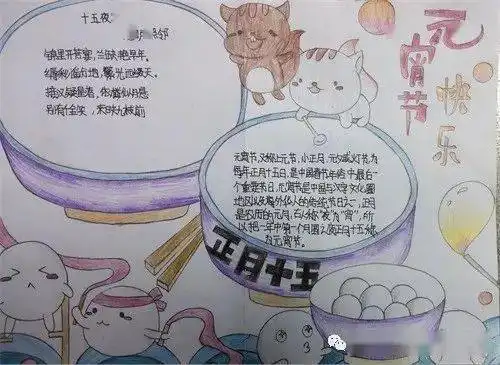 十五夜
锦里开芳宴，兰缸艳早年。
缛彩遥分地，繁光远缀天。
接汉疑星落，依楼似月悬
别有千金笑，来映九枝前
元宵节
快乐
元宵节，又称上元节，小正月、元夕或灯节，为
每年正月十五日，是中国春节年俗中最后一
个重要节日，元宵节是中国与汉字文化圈
地区以及海外华人的传统节日之一，正月
是农历的元月，古人称"夜"为"宵"，所
以把一年中第一个月圆之夜正月十五称
为元宵节。
正月十五